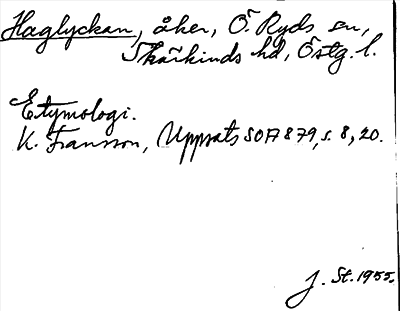 Haglyckan, åker, Ö. Ryds sn,
Skärkinds hd, Östg. l.
Etymologi.
K. Fransson, Uppsats SOFI 879, s. 8, 20.
J. St. 1955.